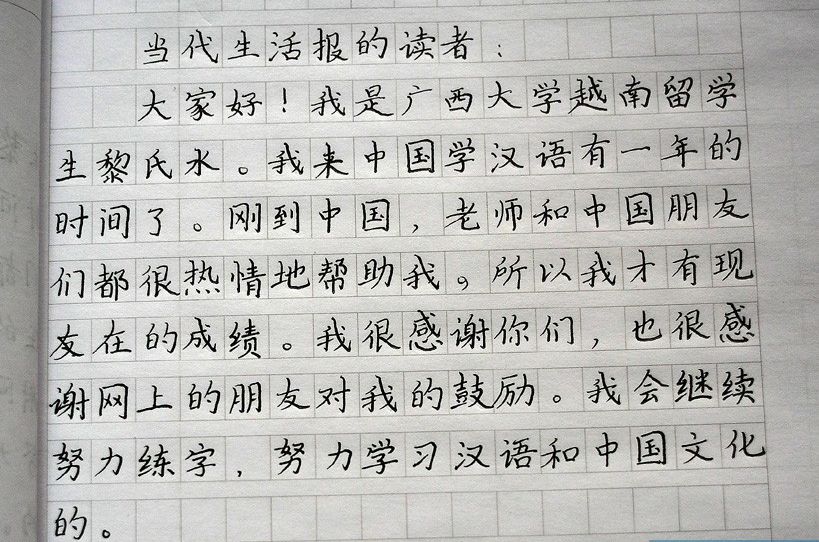 当代生活报的读者：
大家好！我是广西大学越南留学
生黎氏水。我来中国学汉语有一年的
时间了。刚到中国，老师和中国朋友
们都很热情地帮助我。所以我才有现
友在的成绩。我很感谢你们，也很感
谢网上的朋友对我的鼓励。我会继续
努力练字，努力学习汉语和中国文化
的。